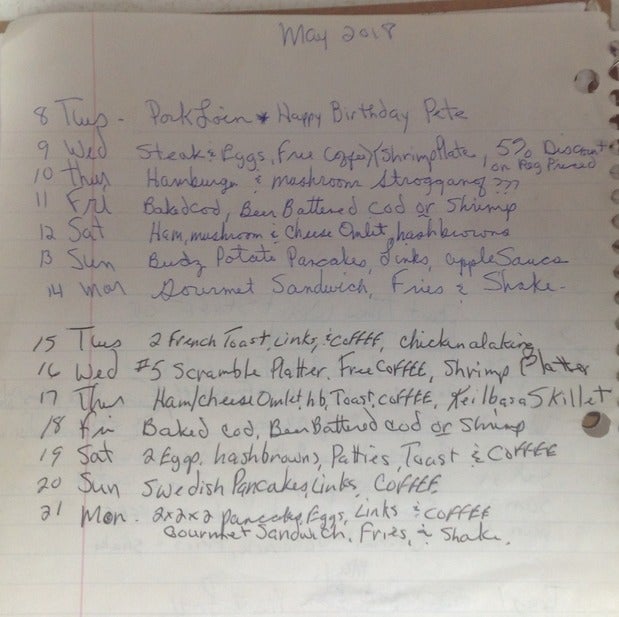 May 2018
8 Tues - Pork Loin * Happy Birthday Pete
9 Wed Steak & Eggs, Free Coffee) (Shrimp Plate, 5% Discount
on Reg Priced
10 Thur Hamburger & mashroom Stroggangf ???
11 Fri Baked cod, Beer Battered cod or Shrimp
12 Sat Ham, mushroom & cheese Omlet, hashbrowns
13 Sun Budz Potato Pancakes, Links, apple Sauce
14 Mon Gourmet Sandwich, Fries & Shake -
15 Tues 2 French Toast, Links, & Coffee, chicken alaking
16 Wed #5 Scramble Platter, Free Coffee, Shrimp Platter
17 Thur Ham/cheese Omlet, hb, Toast, coffee, Keilbasa Skillet
18 Fri Baked cod, Beer Battered cod or Shrimp
19 Sat 2 Eggs, hashbrowns, Patties, Toast & Coffee
20 Sun Swedish Pancakes, Links, Coffee
21 Mon. 2x2x2 pancake, Eggs, Links & coffee
Gourmet Sandwich, Fries, & Shake.